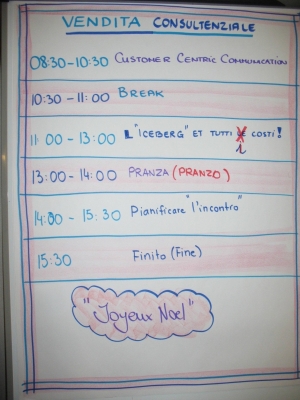 VENDITA CONSULTENZIALE
08:30-10:30 CUSTOMER CENTRIC COMMUNICATION
10:30-11:00 BREAK
11:00-13:00 L'"ICEBERG" ET TUTTI i COSTI!
13:00-14:00 PRANZA (PRANZO)
14:00-15:30 Pianificare "l'incontro"
15:30 Finito (Fine)
"Joyeux Noel"